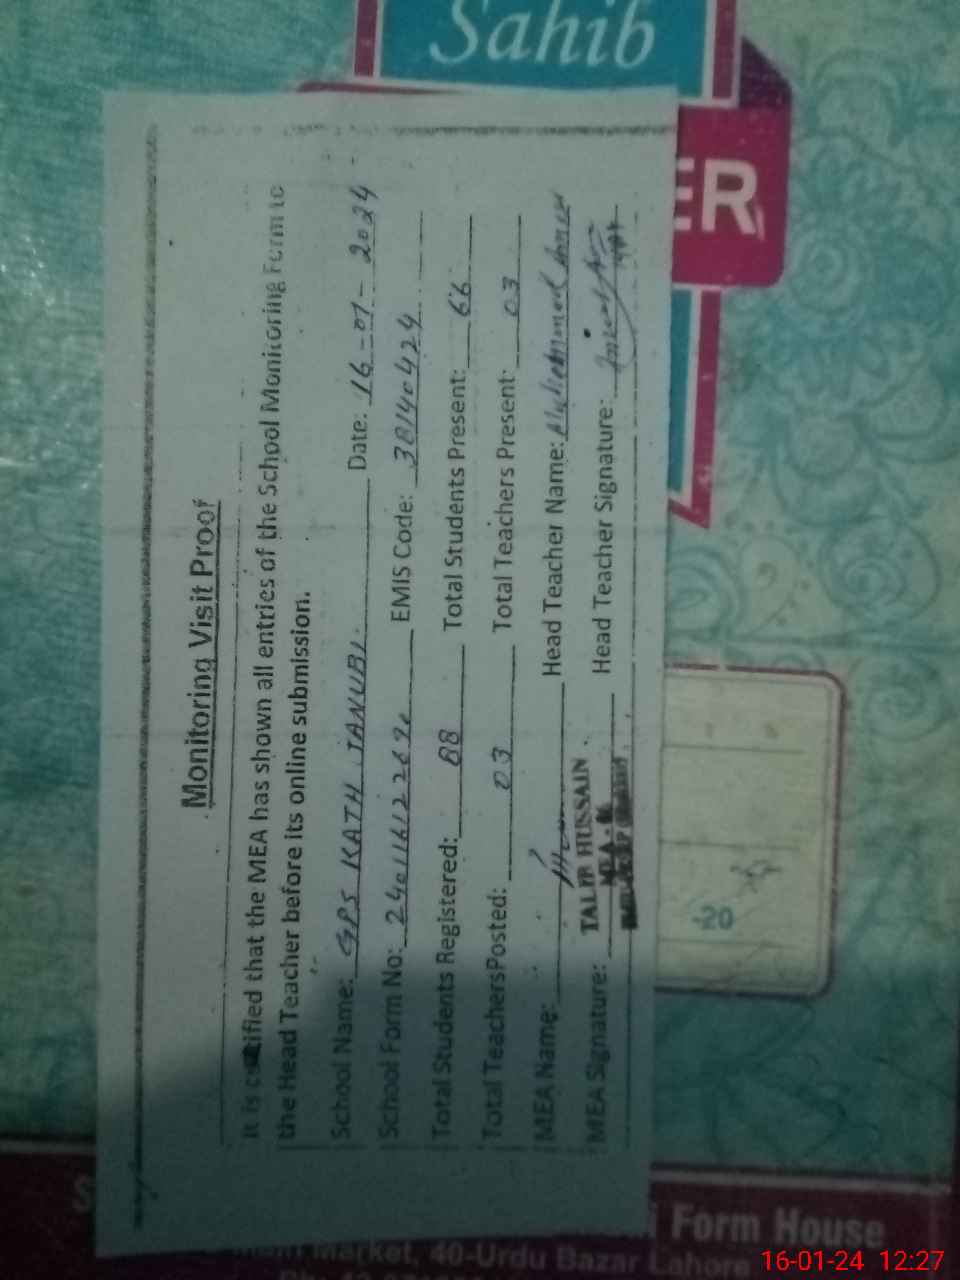 Sahib
ER
Monitoring Visit Proof
It is certified that the MEA has shown all entries of the School Monitoring Form to
the Head Teacher before its online submission.
School Name: GPS KATH JANUBI. Date: 16-01-2024
School Form No: EMIS Code: 38140424
Total Students Registered: 88 Total Students Present: 66
Total TeachersPosted: 03 Total Teachers Present: 03
MEA Name: Head Teacher Name: Muhammad
MEA Signature: Head Teacher Signature:
HUSSAIN
MEA
-20
Form House
Market, 40-Urdu Bazar Lahore
16-01-24 12:27